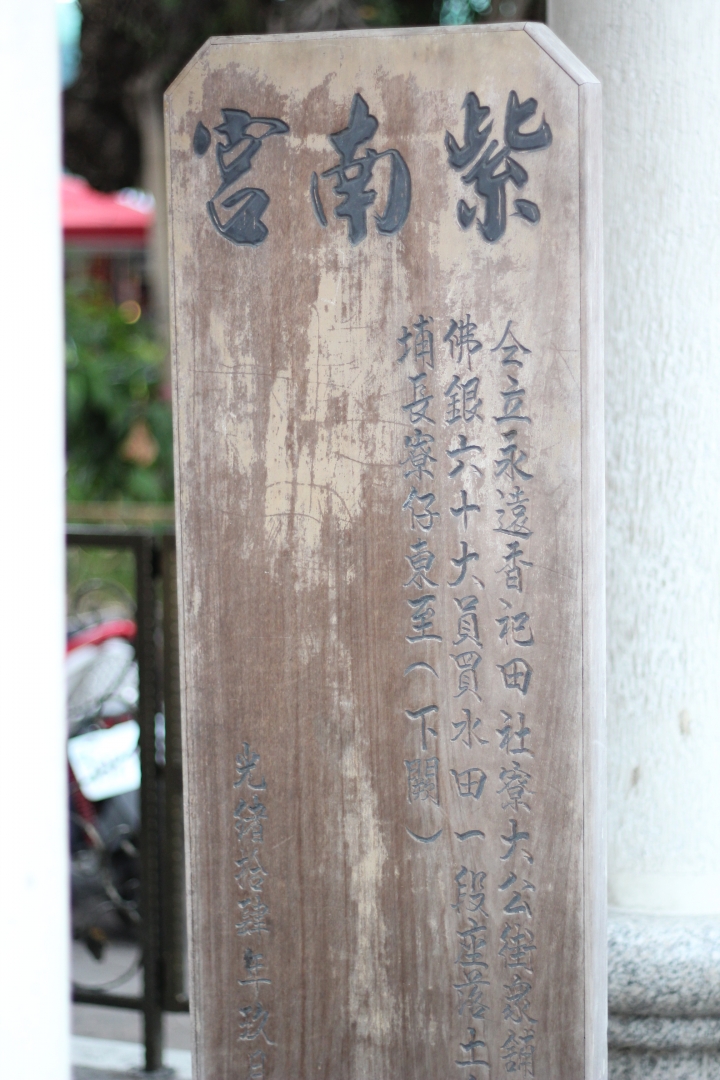 紫南宮
仝立永遠香祀田社寮大公街眾舖
佛銀六十大員買水田一段座落土
埔長寮仔東至（下闕）
光緒拾肆年玖月